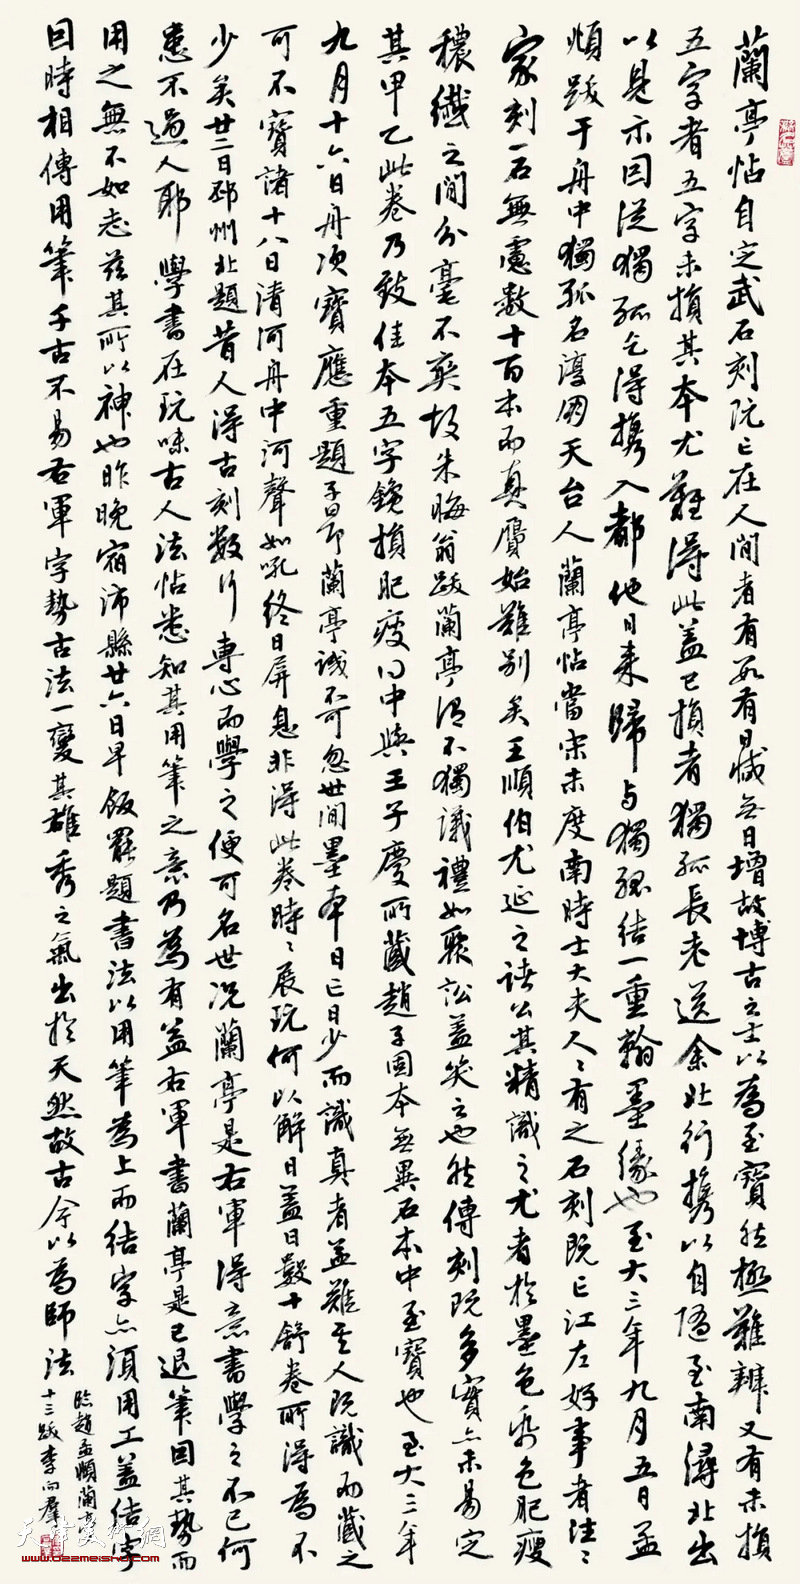 蘭亭帖自定武石刻既亡在人間者有數有日減無日增故博古之士以為至寶然極難辨又有未損
五字者五字未損其本尤難得此蓋已損者獨孤長老送余北行攜以自隨至南潯北出
以見示因從獨孤乞得攜入都他日來歸与獨孤結一重翰墨緣也至大三年九月五日孟
頫跋于舟中獨孤名淳朋天台人蘭亭帖當宋未度南時士大夫人人有之石刻既亡江左好事者往往
家刻一石無慮數十百本而真贗始難別矣王順伯尤延之諸公其精識之尤者於墨色紙色肥瘦
穠纖之間分毫不爽故朱晦翁跋蘭亭謂不獨議禮如聚訟蓋笑之也然傳刻既多實亦未易定
其甲乙此卷乃致佳本五字鑱損肥瘦得中與王子慶所藏趙子固本無異石本中至寶也至大三年
九月十六日舟次寶應重題子昂蘭亭誠不可忽世間墨本日亡日少而識真者蓋難其人既識而藏之
可不寶諸十八日清河舟中河聲如吼終日屏息非得此卷時時展玩何以解日蓋日數十舒卷所得為不
少矣廿二日邳州北題昔人得古刻數行專心而學之便可名世況蘭亭是右軍得意書學之不已何
患不過人耶學書在玩味古人法帖悉知其用筆之意乃為有益右軍書蘭亭是已退筆因其勢而
用之無不如志茲其所以神也昨晚宿沛縣廿六日早飯罷題書法以用筆為上而結字亦須用工蓋結字
因時相傳用筆千古不易右軍字勢古法一變其雄秀之氣出於天然故古今以為師法
臨趙孟頫蘭亭
十三跋李向群
天津美術網
www.022meishu.com